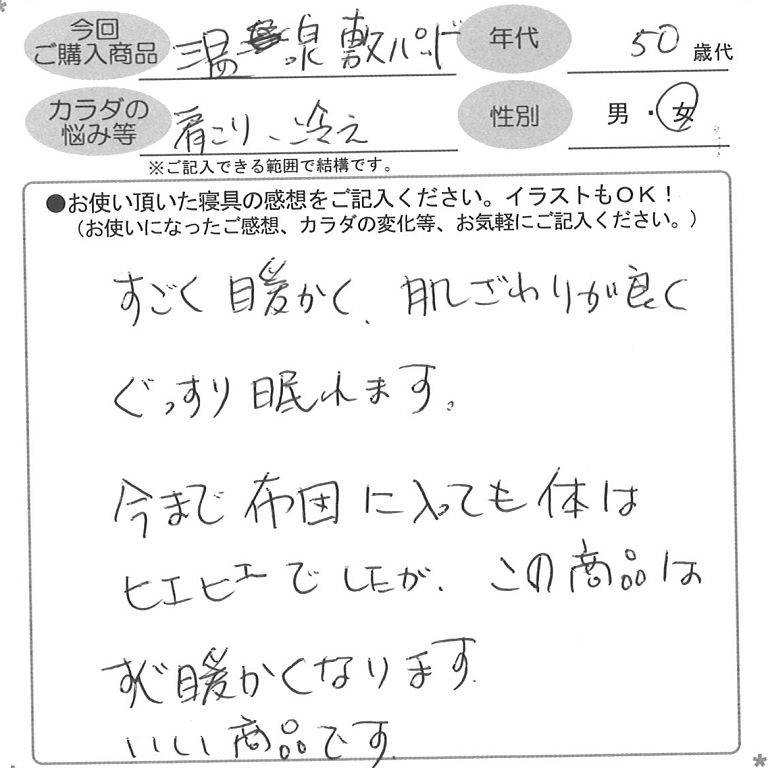 今回
ご購入商品
温泉敷パッド
年代
50歳代
カラダの
悩み等
肩こり、冷え
性別
男・女
※ご記入できる範囲で結構です。
●お使い頂いた寝具の感想をご記入ください。イラストもOK！
（お使いになったご感想、カラダの変化等、お気軽にご記入ください。）
すごく暖かく、肌ざわりが良く
ぐっすり眠れます。
今まで布団に入っても体は
ヒエヒエでしたが、この商品は
すぐ暖かくなります。
いい商品です。